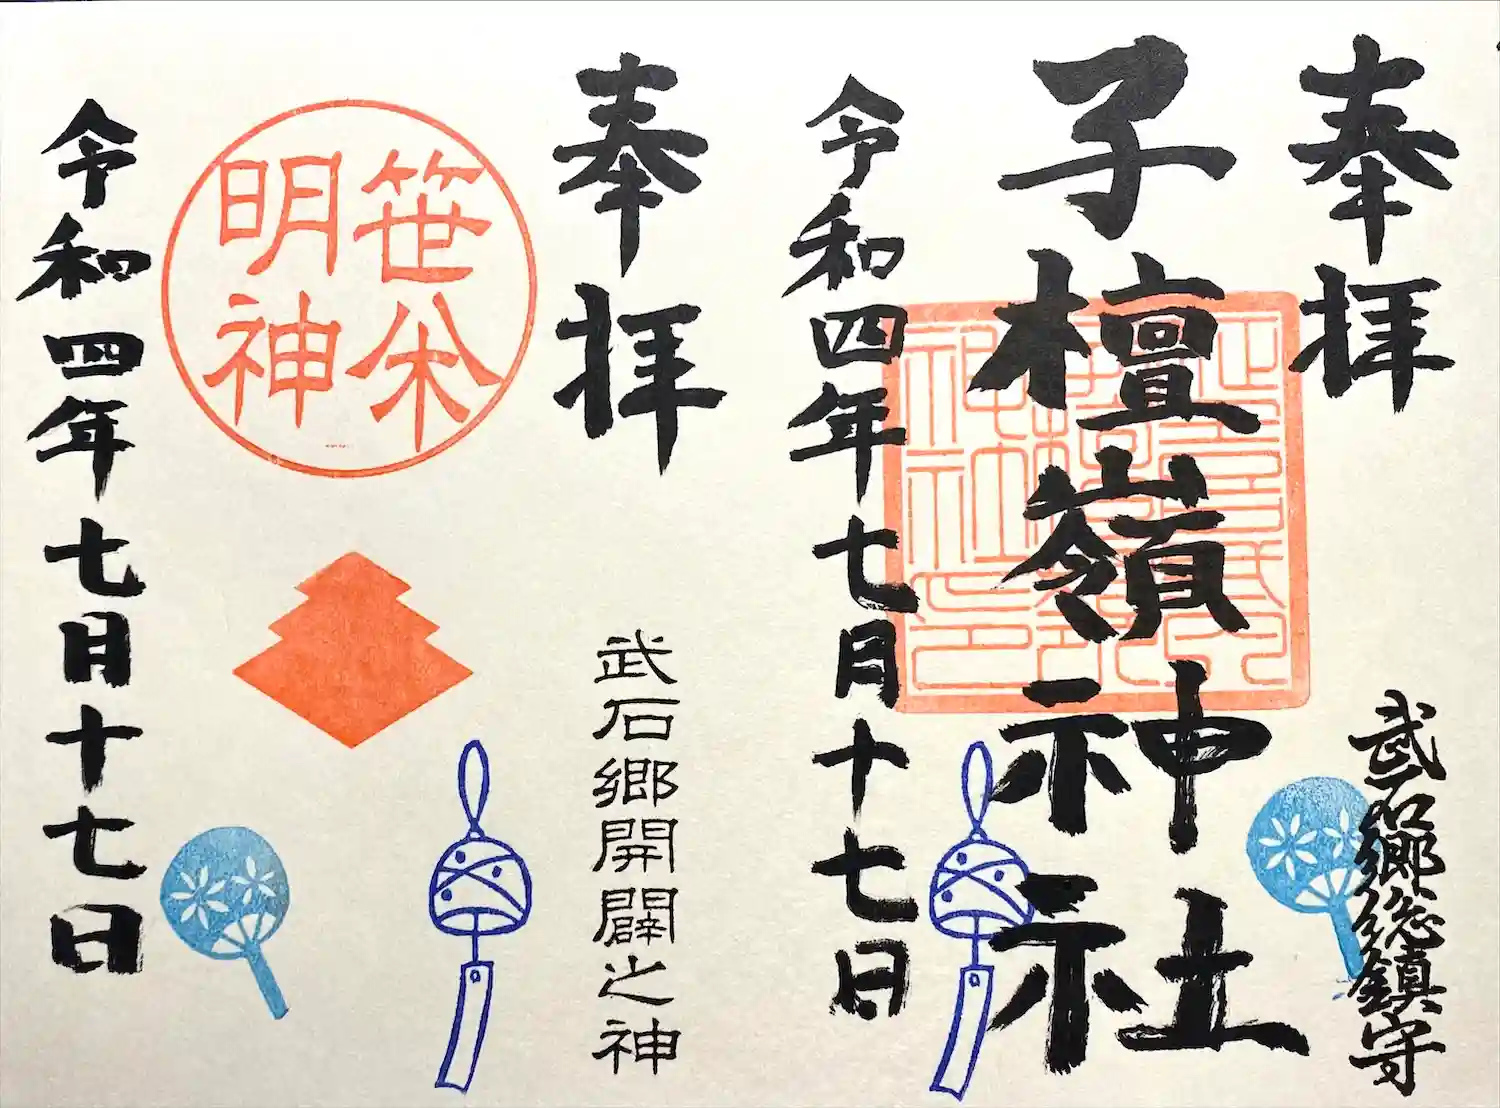 奉拝
武石郷総鎮守
子檀嶺神社
令和四年七月十七日
奉拝
武石郷開闢之神
笹
明神
令和四年七月十七日